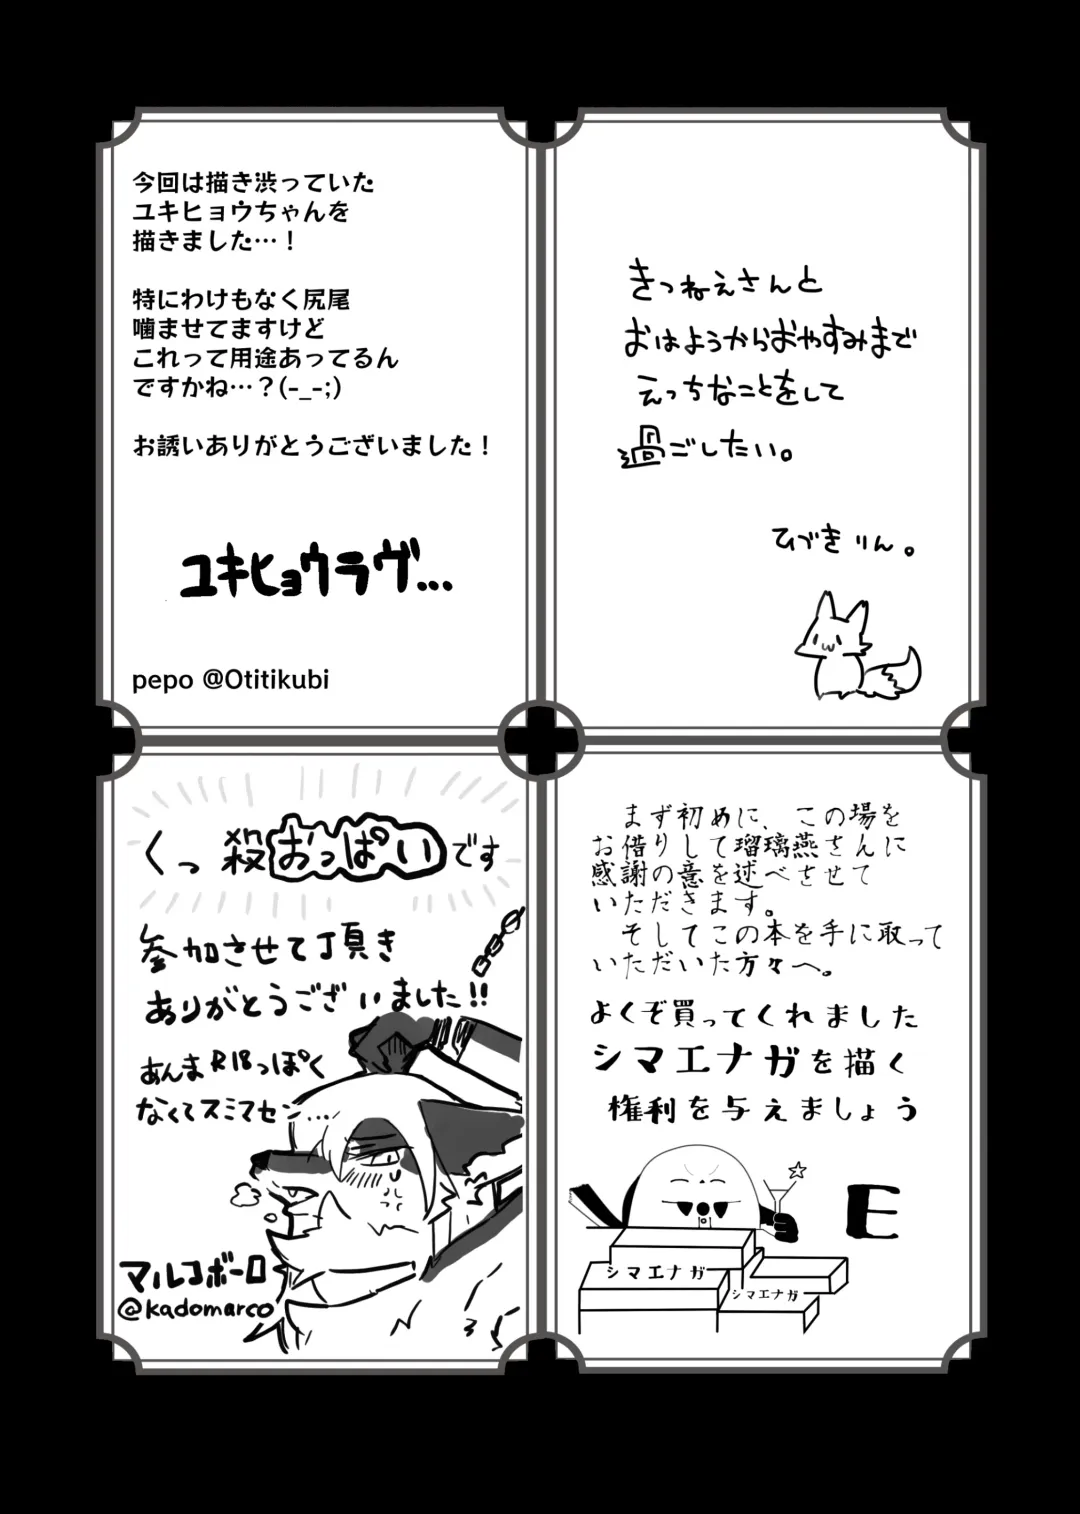 今回は描き渋っていた
ユキヒョウちゃんを
描きました…！
特にわけもなく尻尾
噛ませてますけど
これって用途あってるん
ですかね…？(-_-;)
お誘いありがとうございました！
ユキヒョウラヴ…
pepo @Otitikubi
きつねえさんと
おはようからおやすみまで
えっちなことをして
過ごしたい。
ひづきりん。
くっ殺おっぱいです
参加させて頂き
ありがとうございました!!
あんまR18っぽく
なくてスミマセン...
マルコボーロ
@kadomarco
まず初めに、この場を
お借りして瑠璃燕さんに
感謝の意を述べさせて
いただきます。
そしてこの本を手に取って
いただいた方々へ。
よくぞ買ってくれました
シマエナガを描く
権利を与えましょう
E
シマエナガ
シマエナガ